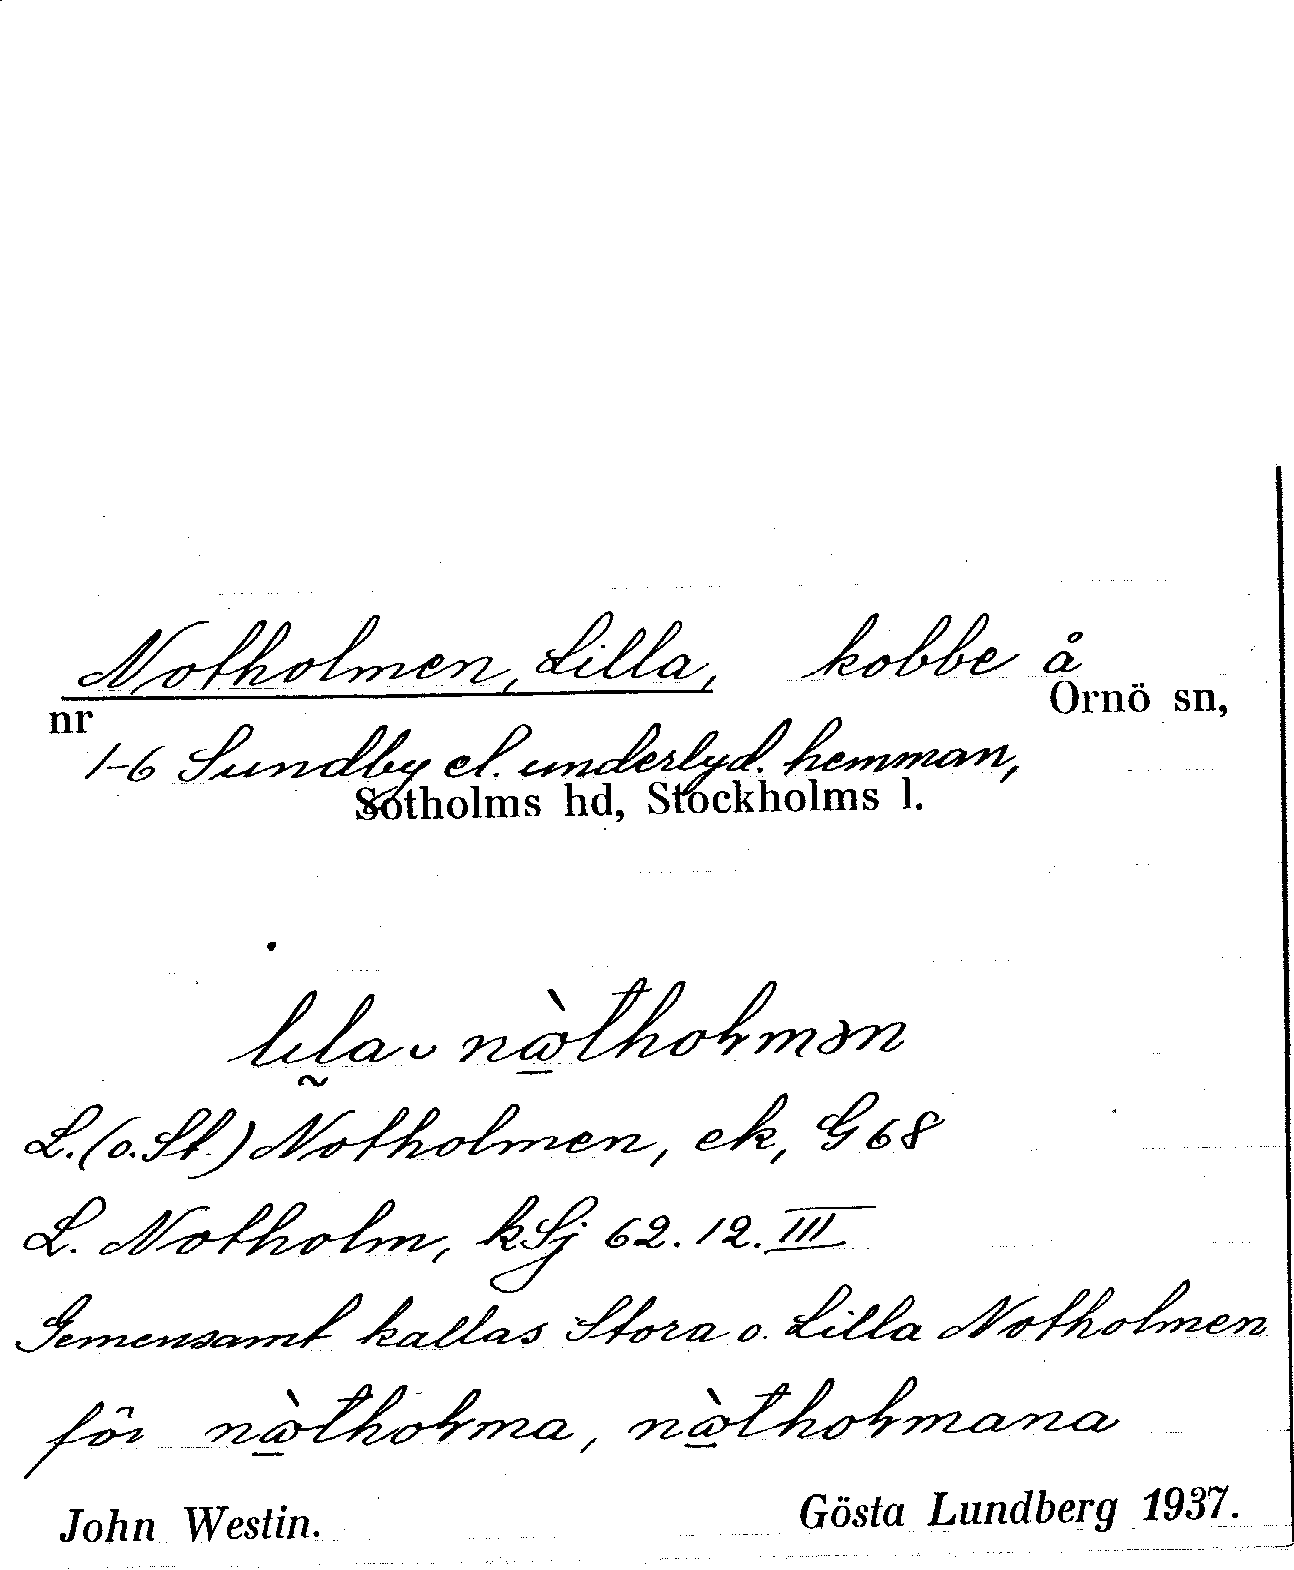 Notholmen, Lilla, kobbe å
Ornö sn,
nr
1-6 Sundby el. underlyd. hemman,
Sotholms hd, Stockholms l.
L. (o. St.) Notholmen, ek, G 68
L. Notholm, kSj 62. 12. III
Gemensamt kallas Stora o. Lilla Notholmen
för
John Westin. Gösta Lundberg 1937.